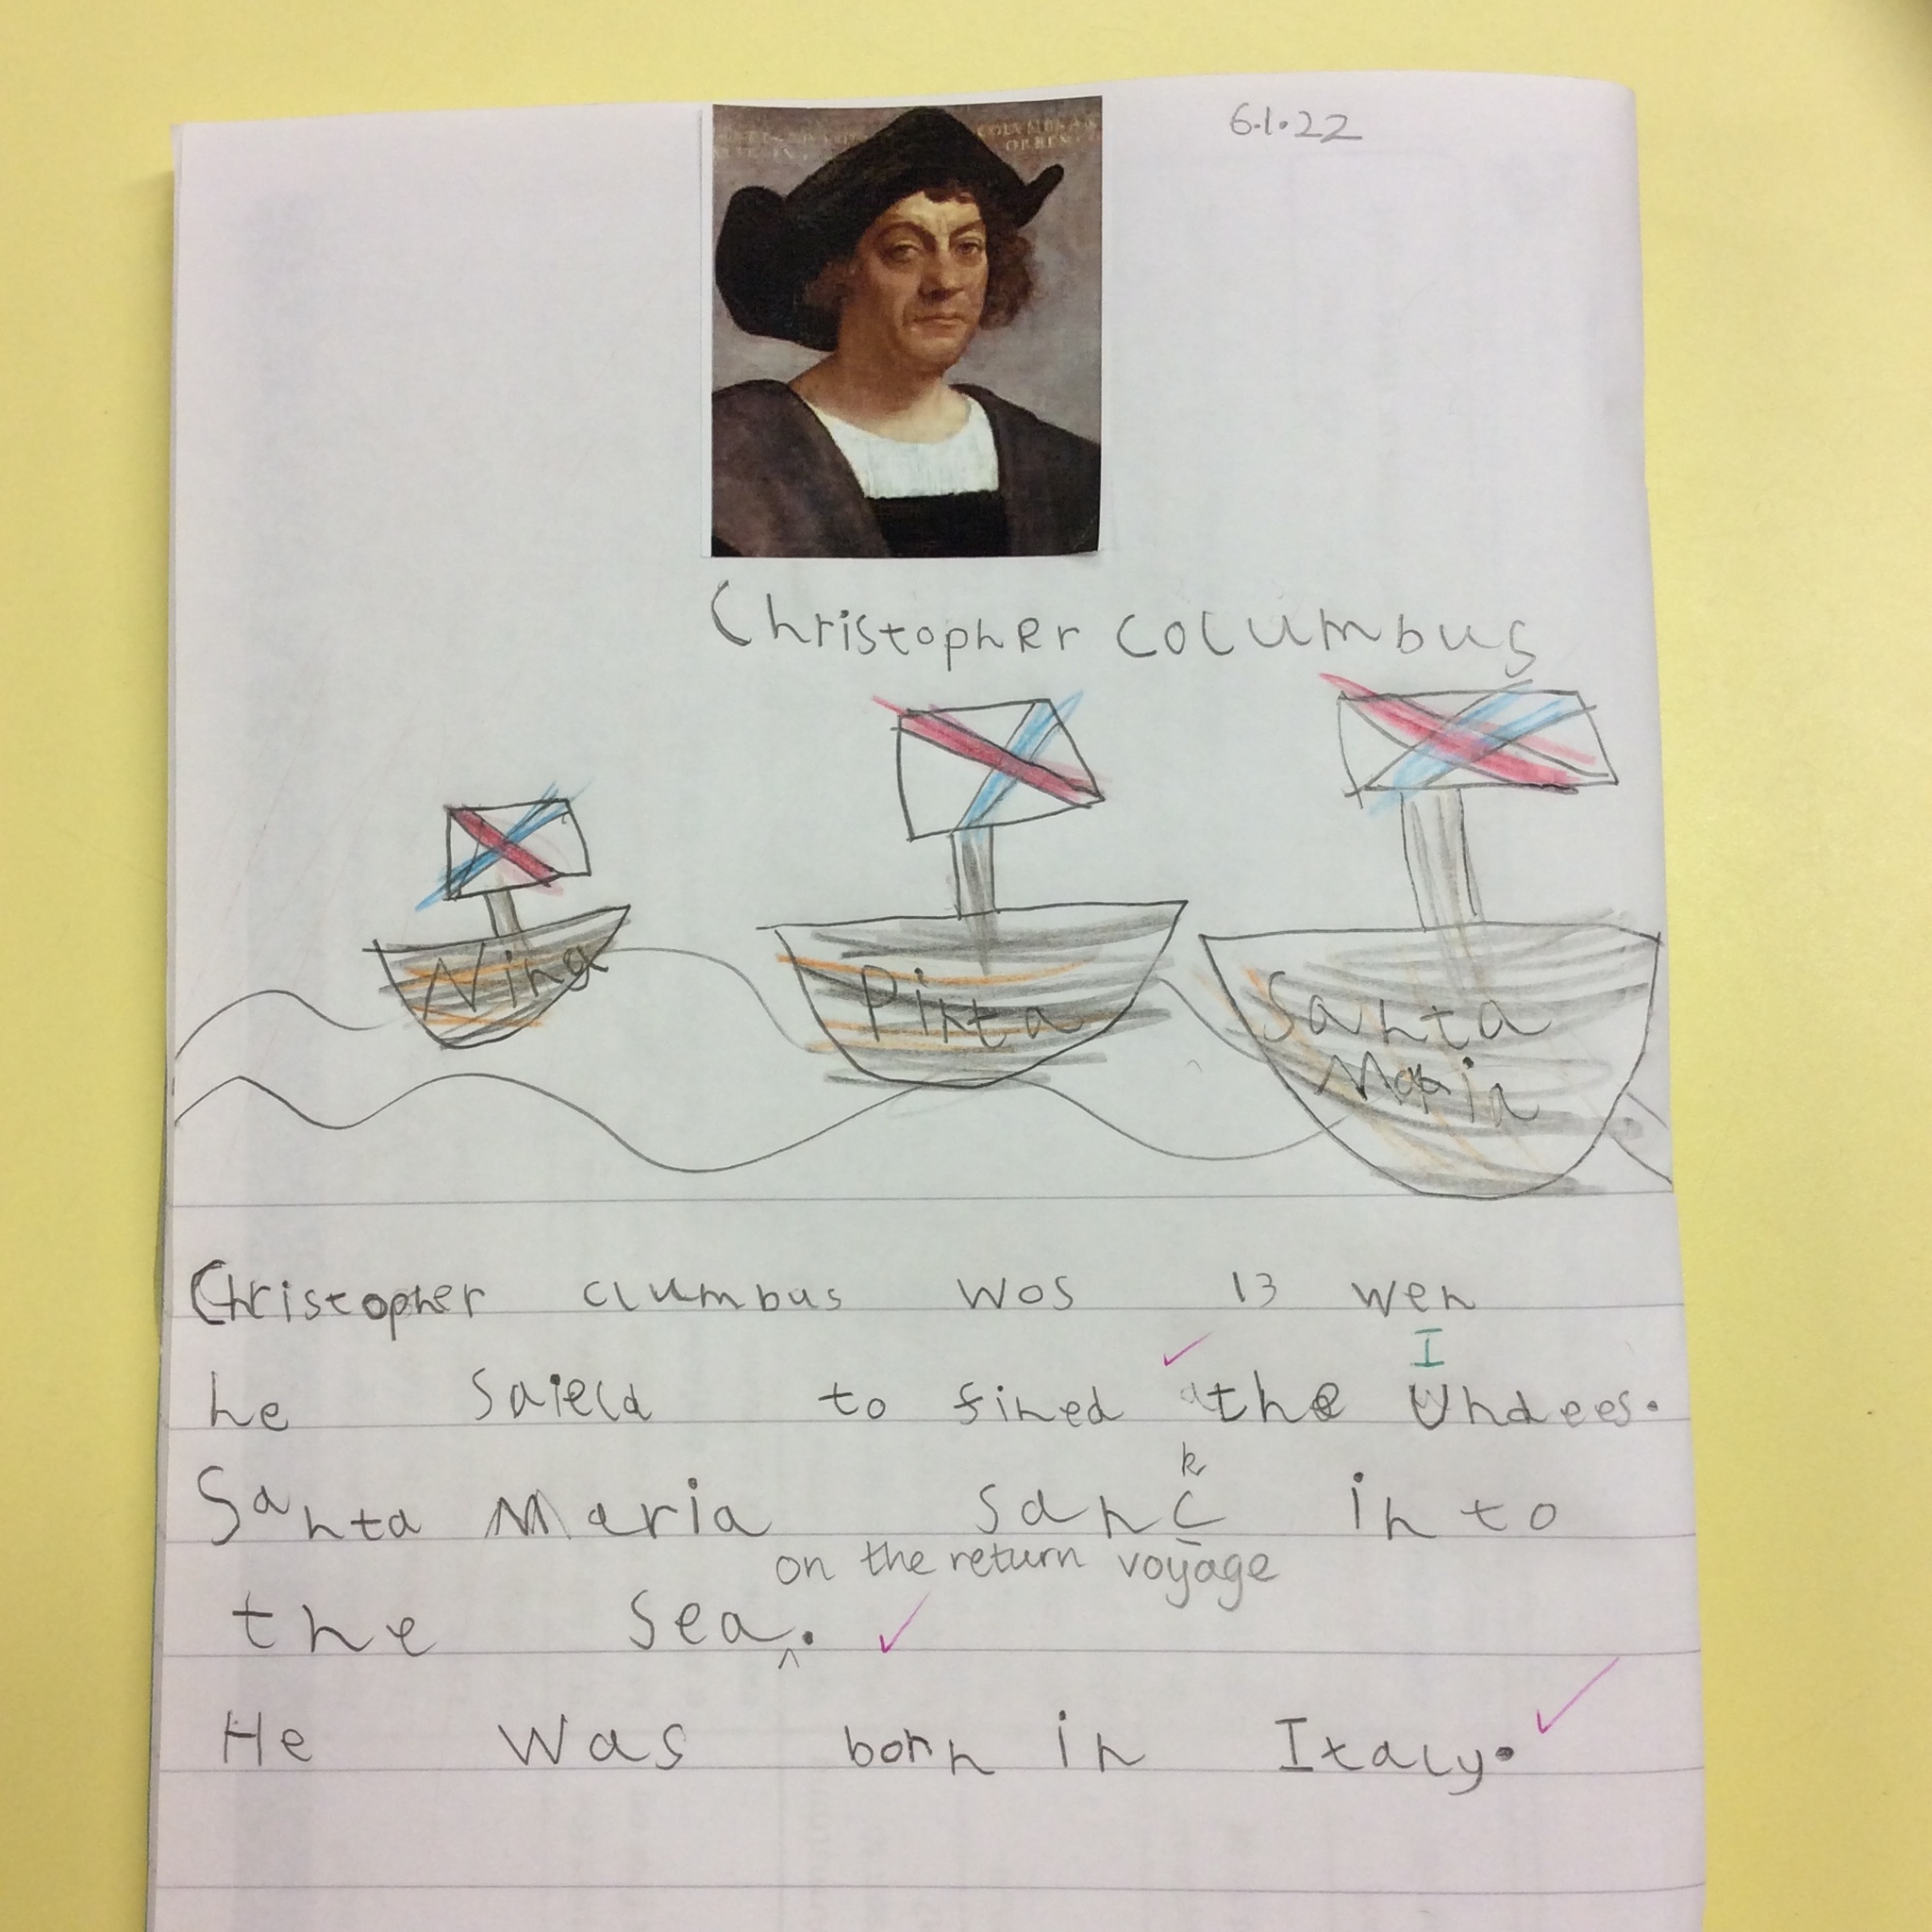 6.1.22
COLVMBVS
ORBEM
Christopher Columbus
Nina
Pinta
Santa
Maria
Christopher clumbus wos 13 wen
I
he saield to fined the Undees.
k
Santa Maria sanc into
on the return voyage
the sea.
He was born in Italy.